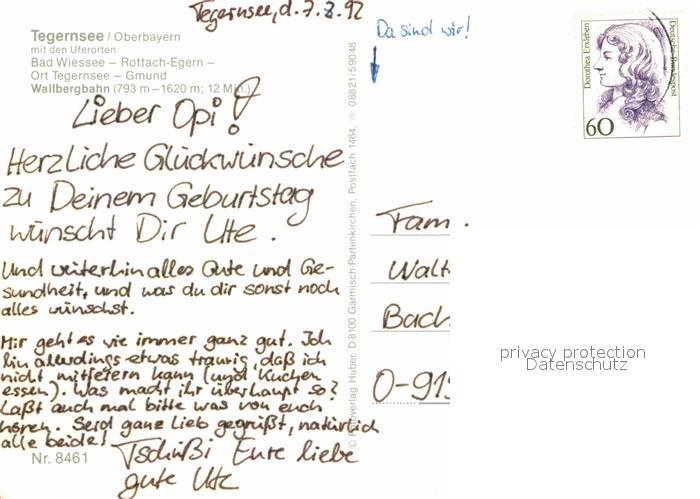 Tegernsee, d. 7.8.92
Da sind wir!
Tegernsee / Oberbayern
mit den Uferorten
Bad Wiessee – Rottach-Egern –
Ort Tegernsee – Gmund
Wallbergbahn (793 m – 1620 m; 12 Min.)
Lieber Opi!
Herzliche Glückwünsche
zu Deinem Geburtstag
wünscht Dir Ute.
Und weiterhin alles Gute und Ge-
sundheit, und was du dir sonst noch
alles wünschst.
Mir geht es wie immer ganz gut. Ich
bin allerdings etwas traurig, daß ich
nicht mitfeiern kann (und Kuchen
essen). Was macht ihr überhaupt so?
Laßt auch mal bitte was von euch
hören. Seid ganz lieb gegrüßt, natürlich
alle beide!
Tschüßi Eure liebe
gute Ute
Nr. 8461
© Fotoverlag Huber, D-8100 Garmisch-Partenkirchen, Postfach 1464, 08821/59048
Dorothea Erxleben
Deutsche Bundespost
60
Fam.
Walt
Bach
O-919
privacy protection
Datenschutz